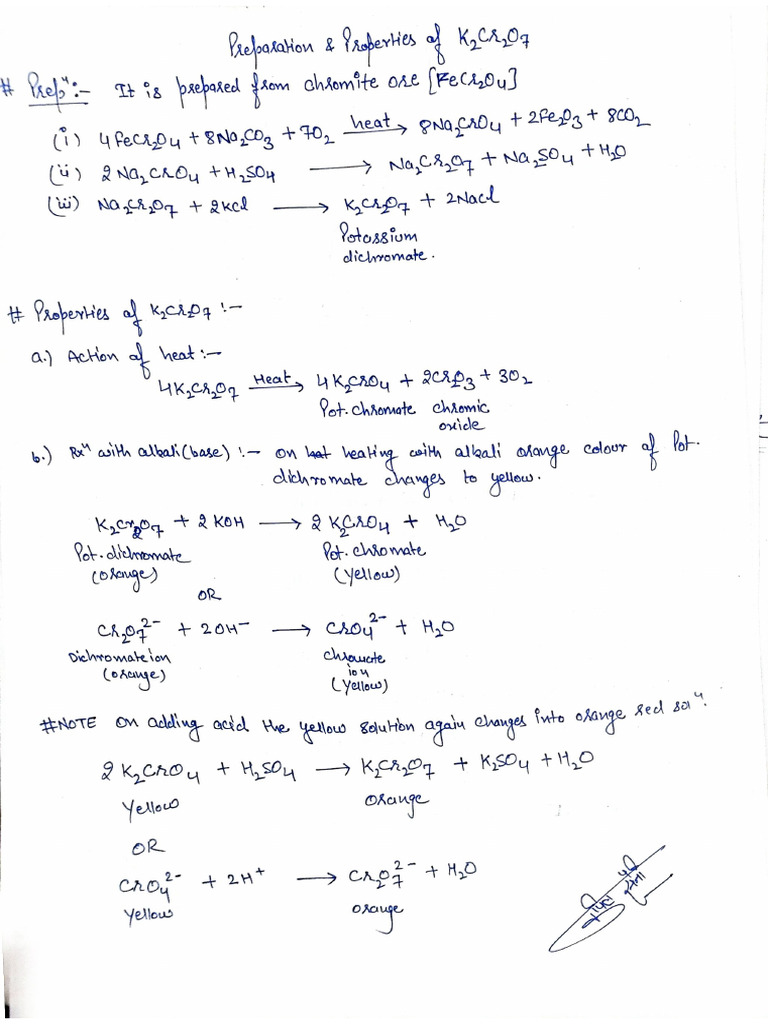 Preparation & Properties of K₂Cr₂O₇
# Prepⁿ:- It is prepared from chromite ore [FeCr₂O₄]
(i) 4FeCr₂O₄ + 8Na₂CO₃ + 7O₂ heat→ 8Na₂CrO₄ + 2Fe₂O₃ + 8CO₂
(ii) 2Na₂CrO₄ + H₂SO₄ → Na₂Cr₂O₇ + Na₂SO₄ + H₂O
(iii) Na₂Cr₂O₇ + 2KCl → K₂Cr₂O₇ + 2NaCl
Potassium
dichromate.
# Properties of K₂Cr₂O₇ :-
a.) Action of heat :-
4K₂Cr₂O₇ Heat→ 4K₂CrO₄ + 2Cr₂O₃ + 3O₂
Pot. chromate chromic
oxide
b.) Rxⁿ with alkali (base) :- on heating with alkali orange colour of Pot.
dichromate changes to yellow.
K₂Cr₂O₇ + 2KOH → 2K₂CrO₄ + H₂O
Pot. dichromate Pot. chromate
(orange) (yellow)
OR
Cr₂O₇²⁻ + 2OH⁻ → CrO₄²⁻ + H₂O
Dichromate ion chromate
ion
(orange) (yellow)
#NOTE On adding acid the yellow solution again changes into orange red solⁿ.
2K₂CrO₄ + H₂SO₄ → K₂Cr₂O₇ + K₂SO₄ + H₂O
Yellow orange
OR
CrO₄²⁻ + 2H⁺ → Cr₂O₇²⁻ + H₂O
Yellow orange